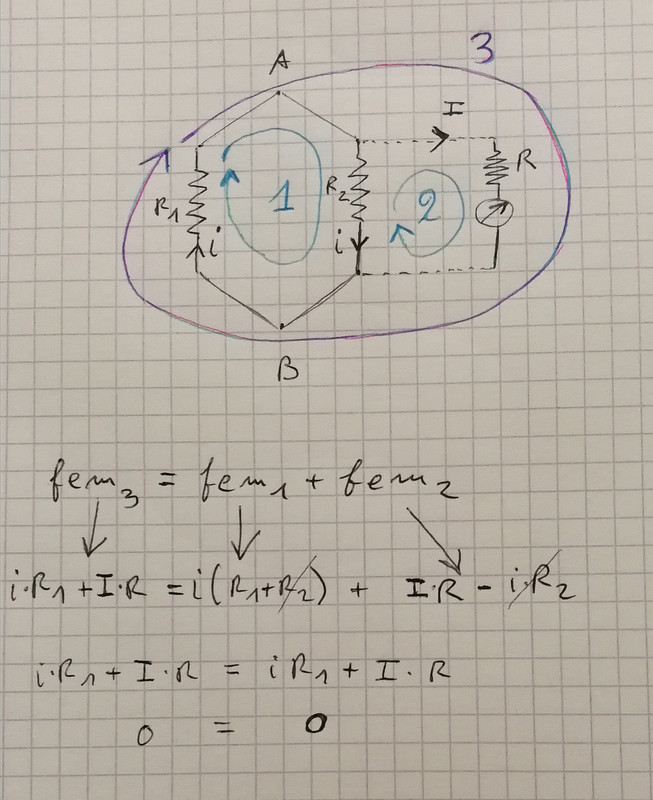 3
A
I
R₁
i
1
R₂
i
2
R
B
fem₃ = fem₁ + fem₂
i·R₁ + I·R = i(R₁+R₂) + I·R - i·R₂
i·R₁ + I·R = iR₁ + I·R
0 = 0